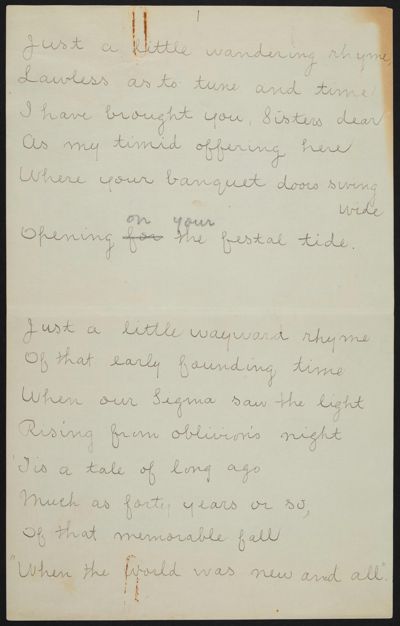 1
Just a little wandering rhyme,
Lawless as to tune and time
I have brought you, Sisters dear
As my timid offering here
Where your banquet doors swing
wide
on your
Opening for the festal tide.
Just a little wayward rhyme
Of that early founding time
When our Sigma saw the light
Rising from oblivion's night
'Tis a tale of long ago
Much as forty years or so,
Of that memorable fall
"When the world was new and all".